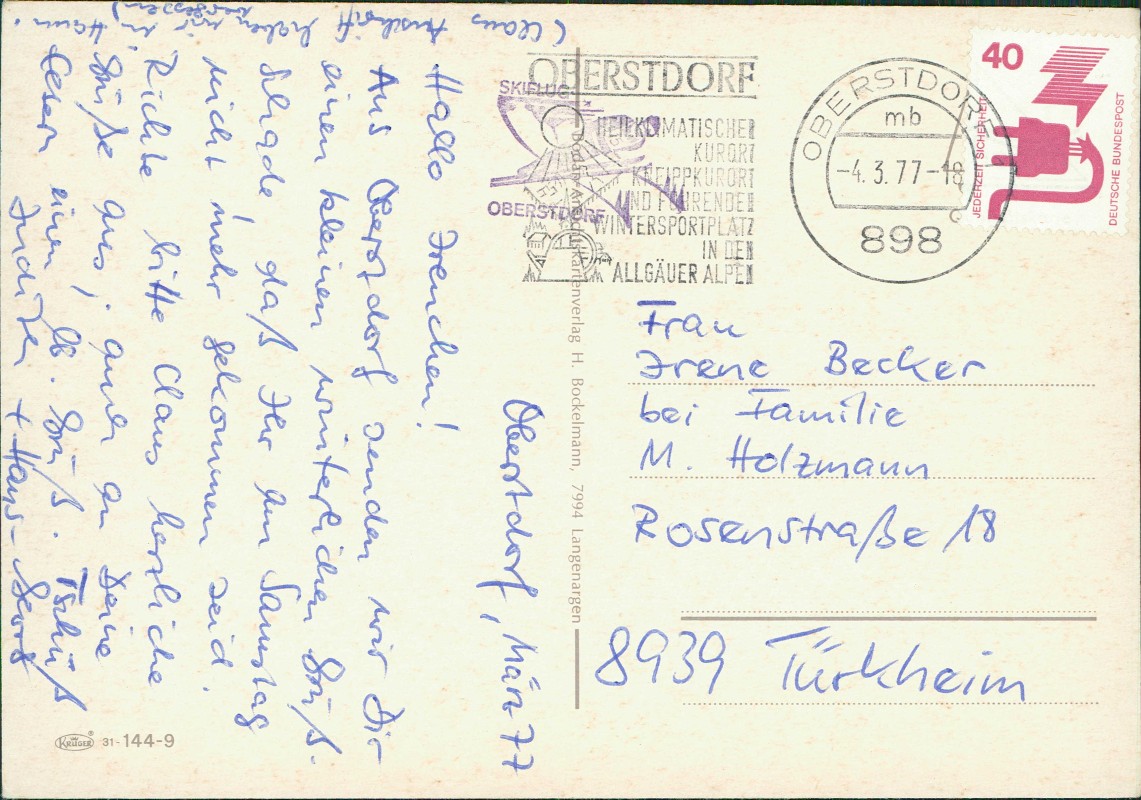 Oberstdorf, März 77
Hallo Irenchen!
Aus Oberstdorf senden wir Dir
einen kleinen winterlichen Gruß.
Schade, daß Ihr am Samstag
nicht mehr gekommen seid.
Richte bitte Claus herzliche
Grüße aus; auch an Deine
Eltern einen lb. Gruß. Tschüß
+ Hans-Georg
(Claus Anschrift haben wir
vergessen)
OBERSTDORF
HEILKLIMATISCHER
KURORT
KNEIPPKURORT
UND FÜHRENDER
WINTERSPORTPLATZ
IN DEN
ALLGÄUER ALPEN
SKIFLUG
OBERSTDORF
OBERSTDORF
mb
-4.3.77-18
898
40
JEDERZEIT SICHERHEIT
DEUTSCHE BUNDESPOST
Frau
Irene Becker
bei Familie
M. Holzmann
Rosenstraße 18
8939 Türkheim
Ansichtskartenverlag H. Bockelmann, 7994 Langenargen
KRÜGER 31-144-9